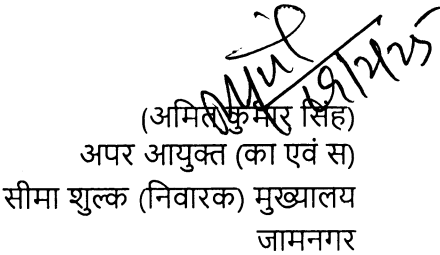 (अमित कुमार सिंह)
अपर आयुक्त (का एवं स)
सीमा शुल्क (निवारक) मुख्यालय
जामनगर